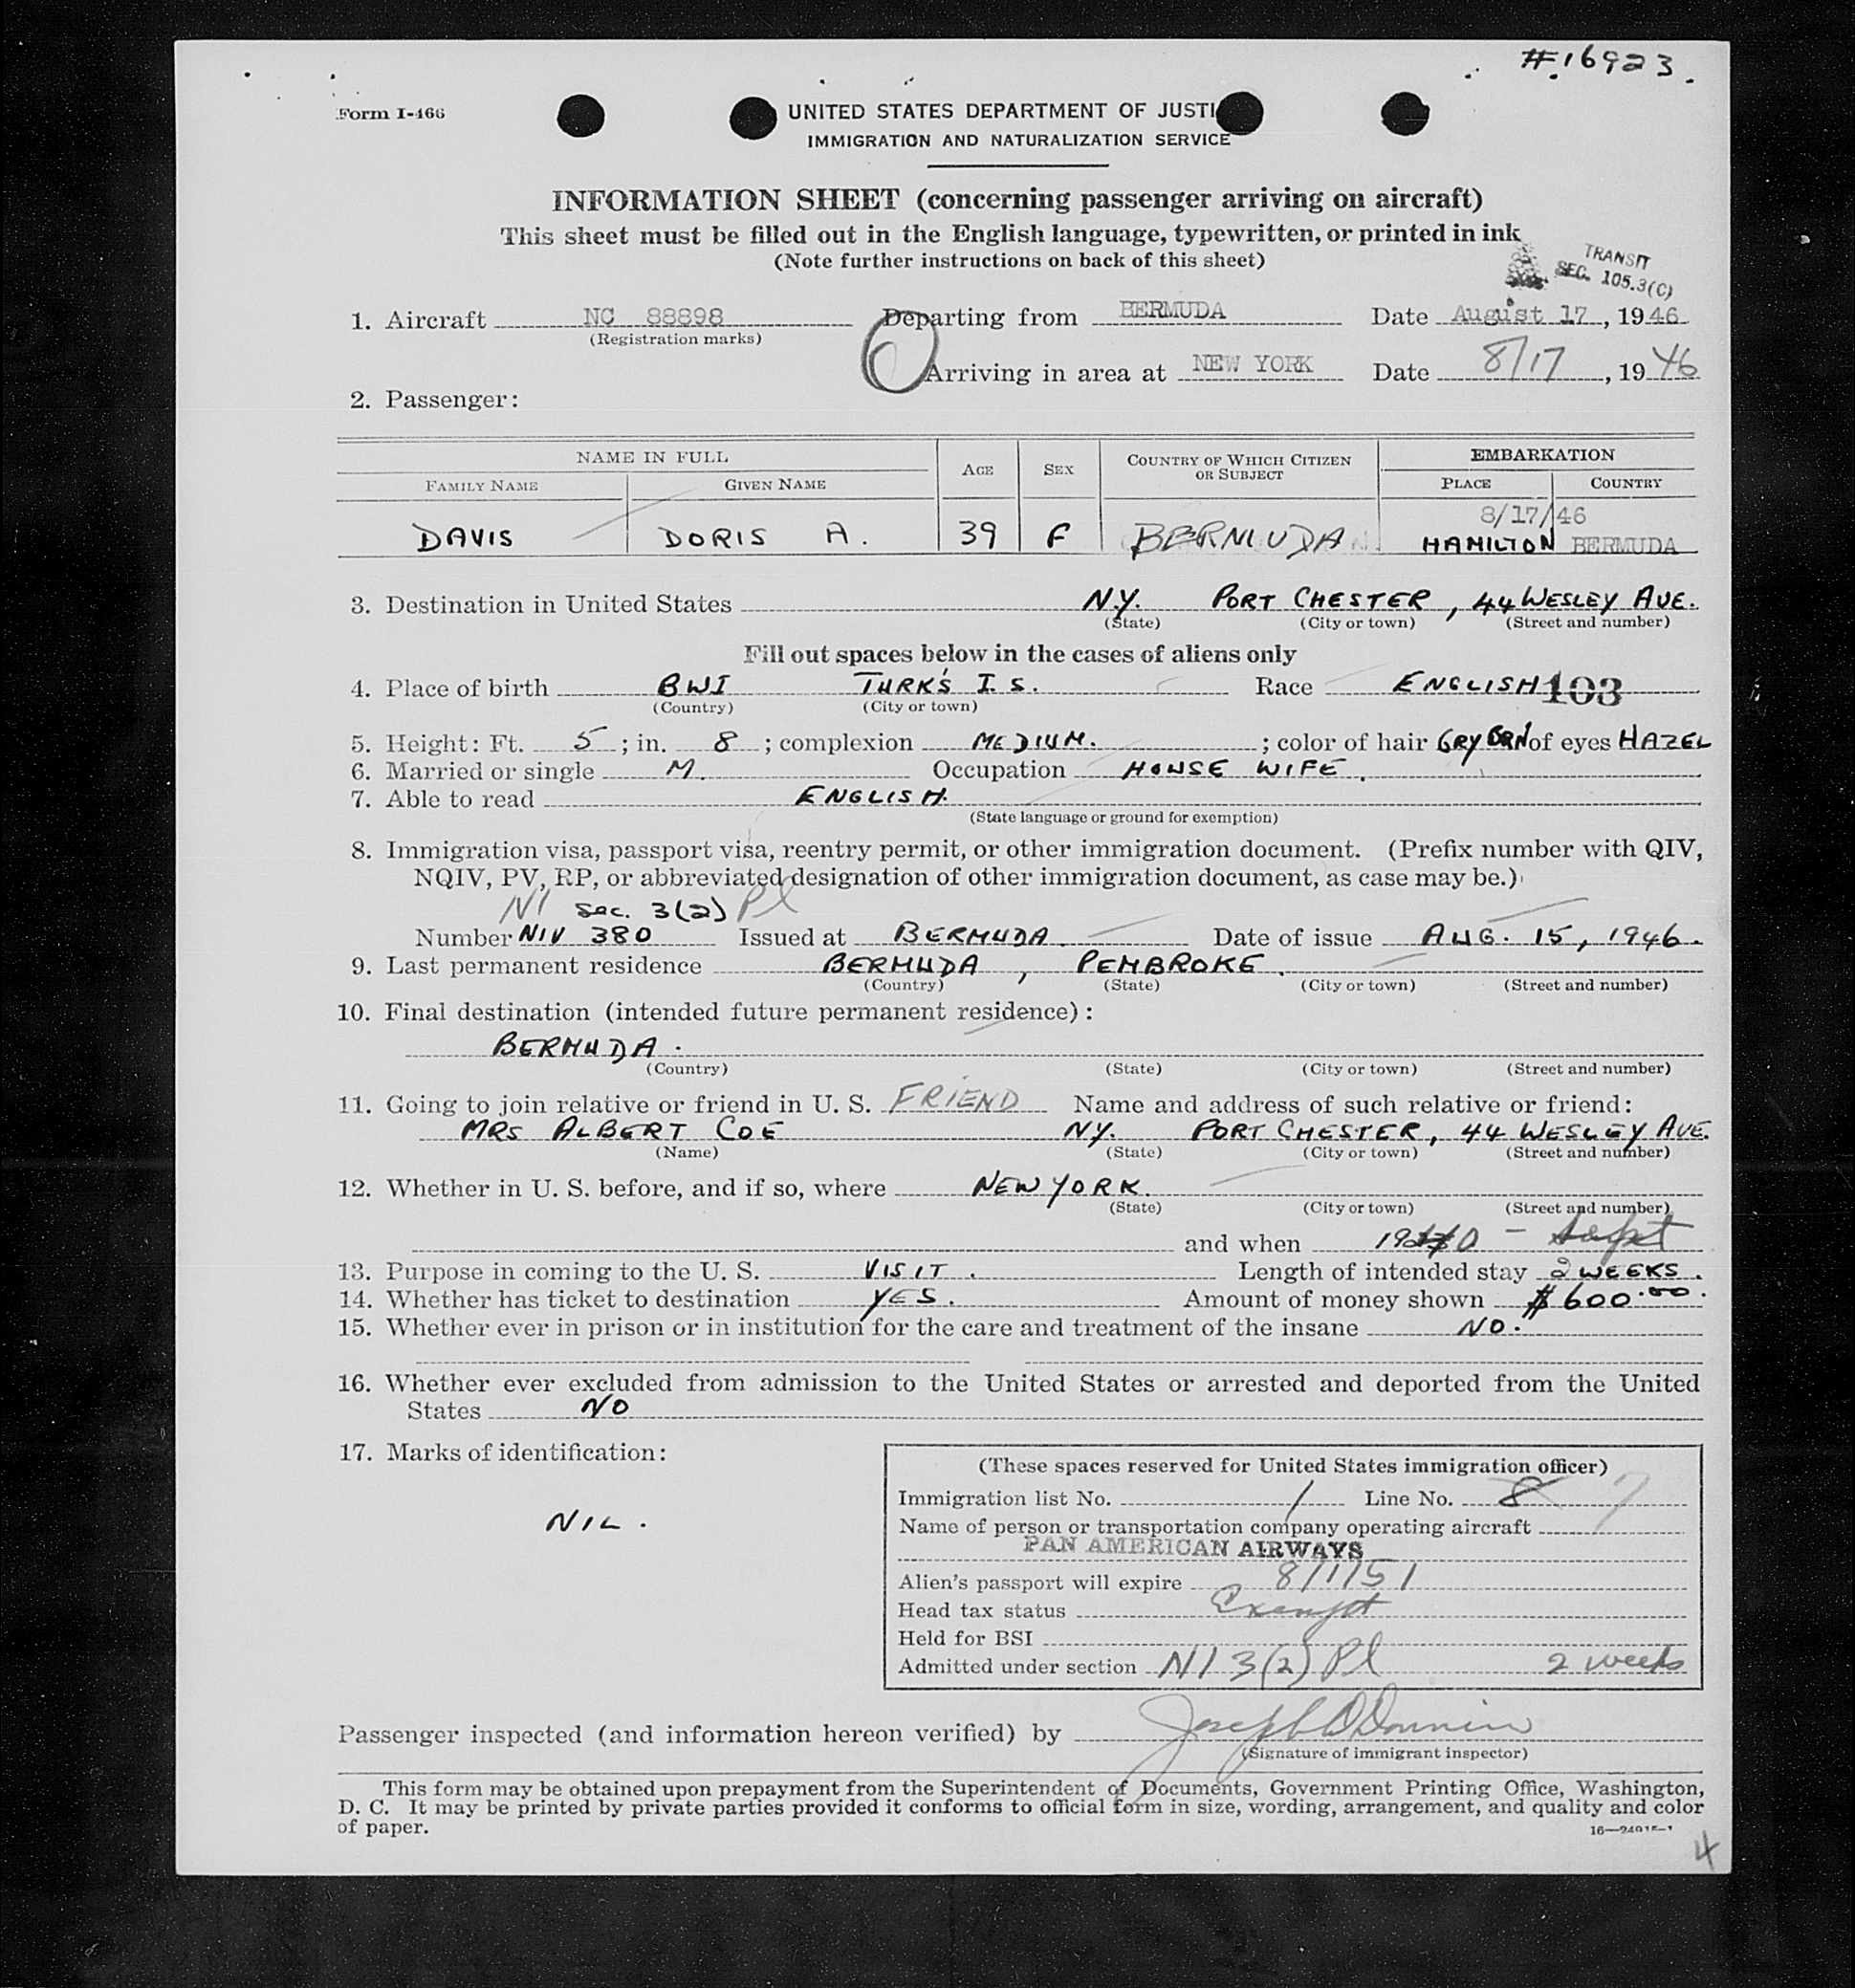 #16923
Form I-466
UNITED STATES DEPARTMENT OF JUSTI
IMMIGRATION AND NATURALIZATION SERVICE
INFORMATION SHEET (concerning passenger arriving on aircraft)
This sheet must be filled out in the English language, typewritten, or printed in ink
(Note further instructions on back of this sheet)
TRANSIT
SEC. 105.3(C)
1. Aircraft NC 88898 Departing from BERMUDA Date August 17, 1946
(Registration marks)
Arriving in area at NEW YORK Date 8/17, 1946
2. Passenger:
NAME IN FULL AGE SEX COUNTRY OF WHICH CITIZEN OR SUBJECT EMBARKATION
FAMILY NAME GIVEN NAME PLACE COUNTRY
8/17/46
DAVIS DORIS A. 39 F BERMUDA HAMILTON BERMUDA
3. Destination in United States N.Y. PORT CHESTER, 44 WESLEY AVE.
(State) (City or town) (Street and number)
Fill out spaces below in the cases of aliens only
4. Place of birth BWI TURK'S I.S. Race ENGLISH 103
(Country) (City or town)
5. Height: Ft. 5; in. 8; complexion MEDIUM.; color of hair GRY BRN of eyes HAZEL
6. Married or single M. Occupation HOUSE WIFE.
7. Able to read ENGLISH.
(State language or ground for exemption)
8. Immigration visa, passport visa, reentry permit, or other immigration document. (Prefix number with QIV,
NQIV, PV, RP, or abbreviated designation of other immigration document, as case may be.)
NI Sec. 3(2) Pl
Number NIV 380 Issued at BERMUDA. Date of issue AUG. 15, 1946.
9. Last permanent residence BERMUDA, PEMBROKE.
(Country) (State) (City or town) (Street and number)
10. Final destination (intended future permanent residence):
BERMUDA.
(Country) (State) (City or town) (Street and number)
11. Going to join relative or friend in U. S. FRIEND Name and address of such relative or friend:
MRS ALBERT COE NY. PORT CHESTER, 44 WESLEY AVE.
(Name) (State) (City or town) (Street and number)
12. Whether in U. S. before, and if so, where NEW YORK.
(State) (City or town) (Street and number)
and when - Sept
13. Purpose in coming to the U. S. VISIT. Length of intended stay 2 WEEKS.
14. Whether has ticket to destination YES. Amount of money shown $600.00.
15. Whether ever in prison or in institution for the care and treatment of the insane NO.
16. Whether ever excluded from admission to the United States or arrested and deported from the United
States NO
17. Marks of identification:
NIL.
(These spaces reserved for United States immigration officer)
Immigration list No. 1 Line No. 8 7
Name of person or transportation company operating aircraft
PAN AMERICAN AIRWAYS
Alien's passport will expire 8/1/51
Head tax status Exempt
Held for BSI
Admitted under section NI 3(2) Pl 2 weeks
Passenger inspected (and information hereon verified) by
(Signature of immigrant inspector)
This form may be obtained upon prepayment from the Superintendent of Documents, Government Printing Office, Washington,
D. C. It may be printed by private parties provided it conforms to official form in size, wording, arrangement, and quality and color
of paper.
4